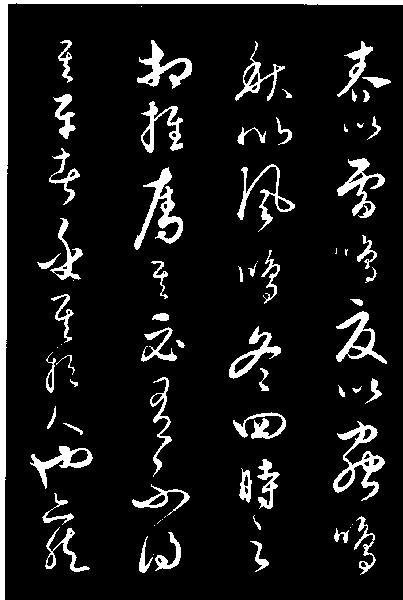 春以雷鳴夏以蟲鳴
秋以風鳴冬四時之
相推奪其必有不得
其平者乎其於人也亦然